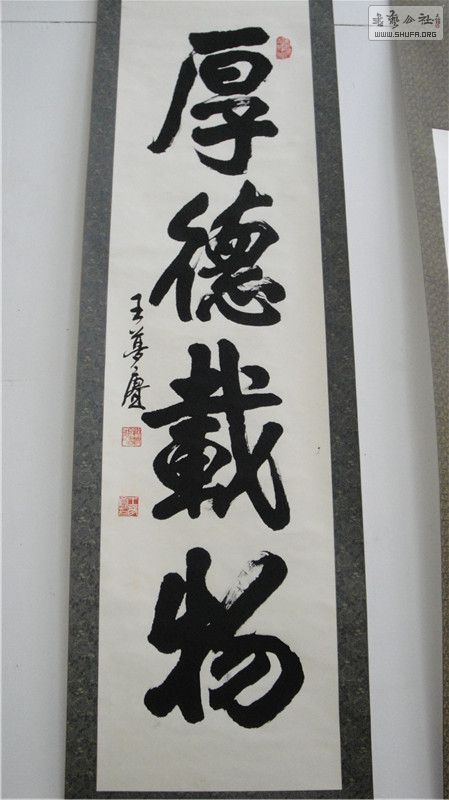 厚德載物
王夢賡
書藝公社
WWW.SHUFA.ORG